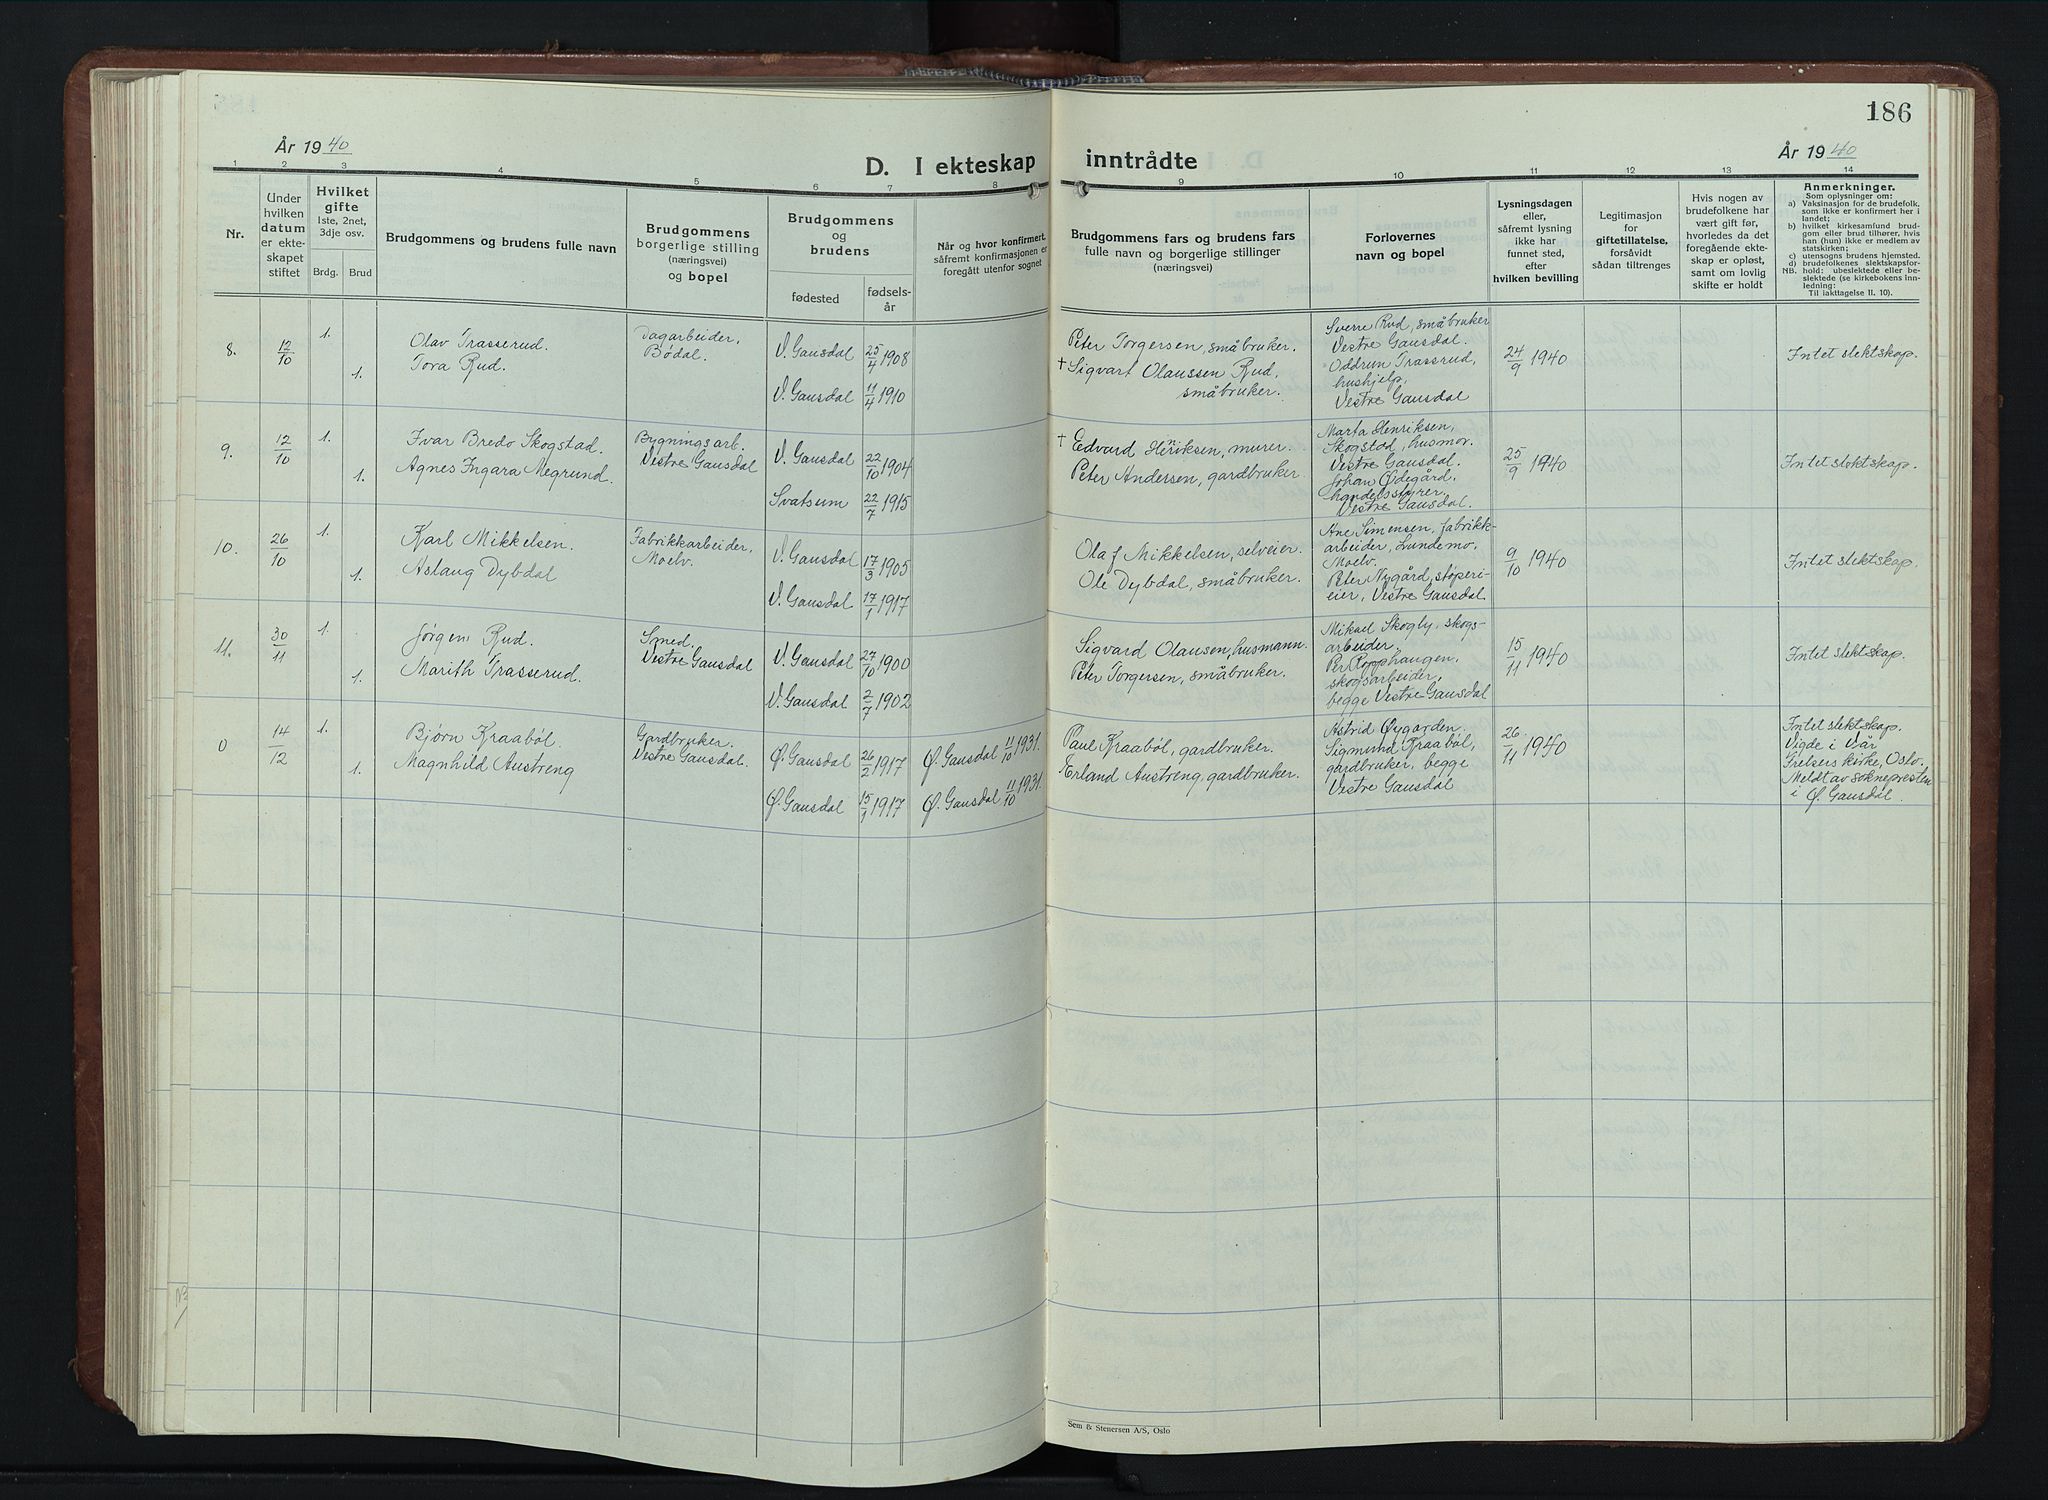 186
År 19 40
År 19 40
D. I ekteskap inntrådte
1 2 3 4 5 6 7 8 9 10 11 12 13 14
Nr.
Under
hvilken
datum
er ekte-
skapet
stiftet
Hvilket
gifte
1ste, 2net,
3dje osv.
Brdg. Brud
Brudgommens og brudens fulle navn
Brudgommens
borgerlige stilling
(næringsvei)
og bopel
Brudgommens
og
brudens
fødested
fødsels-
år
Når og hvor konfirmert,
såfremt konfirmasjonen er
foregått utenfor sognet
Brudgommens fars og brudens fars
fulle navn og borgerlige stillinger
(næringsvei)
Forlovernes
navn og bopel
Lysningsdagen
eller,
såfremt lysning
ikke har
funnet sted,
efter
hvilken bevilling
Legitimasjon
for
giftetillatelse,
forsåvidt
sådan tiltrenges
Hvis nogen av
brudefolkene har
vært gift før,
hvorledes da det
foregående ekte-
skap er opløst,
samt om lovlig
skifte er holdt
Anmerkninger.
Som oplysninger om:
a) Vaksinasjon for de brudefolk,
som ikke er konfirmert her i
landet;
b) hvilket kirkesamfund brud-
gom eller brud tilhører, hvis
han (hun) ikke er medlem av
statskirken;
c) utensogns brudens hjemsted.
d) brudefolkenes slektskapsfor-
NB. hold: ubeslektede eller be-
slektede (se kirkebokens inn-
ledning:
Til iakttagelse II. 10).
8.
12/10
1.
1.
Olav Trasserud.
Tora Rud.
Dagarbeider,
Bødal.
V. Gausdal 25/4 1908
V. Gausdal 11/4 1910
Peter Torgersen, småbruker.
† Sigvart Olaussen Rud,
småbruker.
Sverre Rud, småbruker
Vestre Gausdal.
Oddrun Trassrud,
hushjelp,
Vestre Gausdal
24/9 1940
Intet slektskap.
9.
12/10
1.
1.
Ivar Bredo Skogstad.
Agnes Ingara Megrund.
Bygningsarb.
Vestre Gausdal
V. Gausdal 22/10 1904
Svatsum 22/7 1915
† Edvard Henriksen, murer.
Peter Andersen, gardbruker.
Marta Henriksen,
Skogstad, husmor.
Vestre Gausdal.
Johan Ødegård,
handelsstyrer,
Vestre Gausdal.
25/9 1940
Intet slektskap.
10.
26/10
1.
1.
Karl Mikkelsen.
Aslaug Dybdal
Fabrikkarbeider,
Moelv.
V. Gausdal 17/3 1905
V. Gausdal 17/1 1917
Olaf Mikkelsen, selveier.
Ole Dybdal, småbruker.
Ane Simensen, fabrikk-
arbeider, Lundemo,
Moelv.
Peter Nygård, støperi-
eier, Vestre Gausdal
9/10 1940
Intet slektskap.
11.
30/11
1.
1.
Jørgen Rud.
Marith Trasserud.
Smed.
Vestre Gausdal
V. Gausdal 27/10 1900
V. Gausdal 2/7 1902
Sigvard Olausen, husmann.
Peter Torgersen, småbruker.
Mikael Skogly, skogs-
arbeider.
Per Ropphaugen,
skogsarbeider,
begge Vestre Gausdal
15/11 1940
Intet slektskap.
0
14/12
1.
1.
Bjørn Kraabøl.
Magnhild Austreng
Gardbruker.
Vestre Gausdal.
Ø. Gausdal 26/2 1917
Ø. Gausdal 15/1 1917
Ø. Gausdal 11/10 1931.
Ø. Gausdal 11/10 1931.
Paul Kraabøl, gardbruker.
Erland Austreng, gardbruker.
Astrid Øygarden.
Sigmund Kraabøl,
gardbruker, begge
Vestre Gausdal
26/11 1940
Intet slektskap.
Vigde i Vår
Frelsers kirke, Oslo.
Meldt av soknepresten
i Ø. Gausdal.
Sem & Stenersen A/S, Oslo